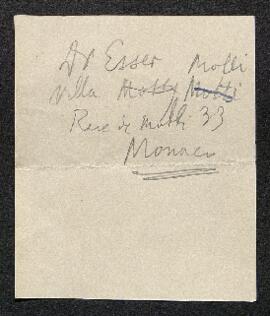 Dr Esser Molli
Villa Hotty Motti
Rue de Motti 33
Monaco